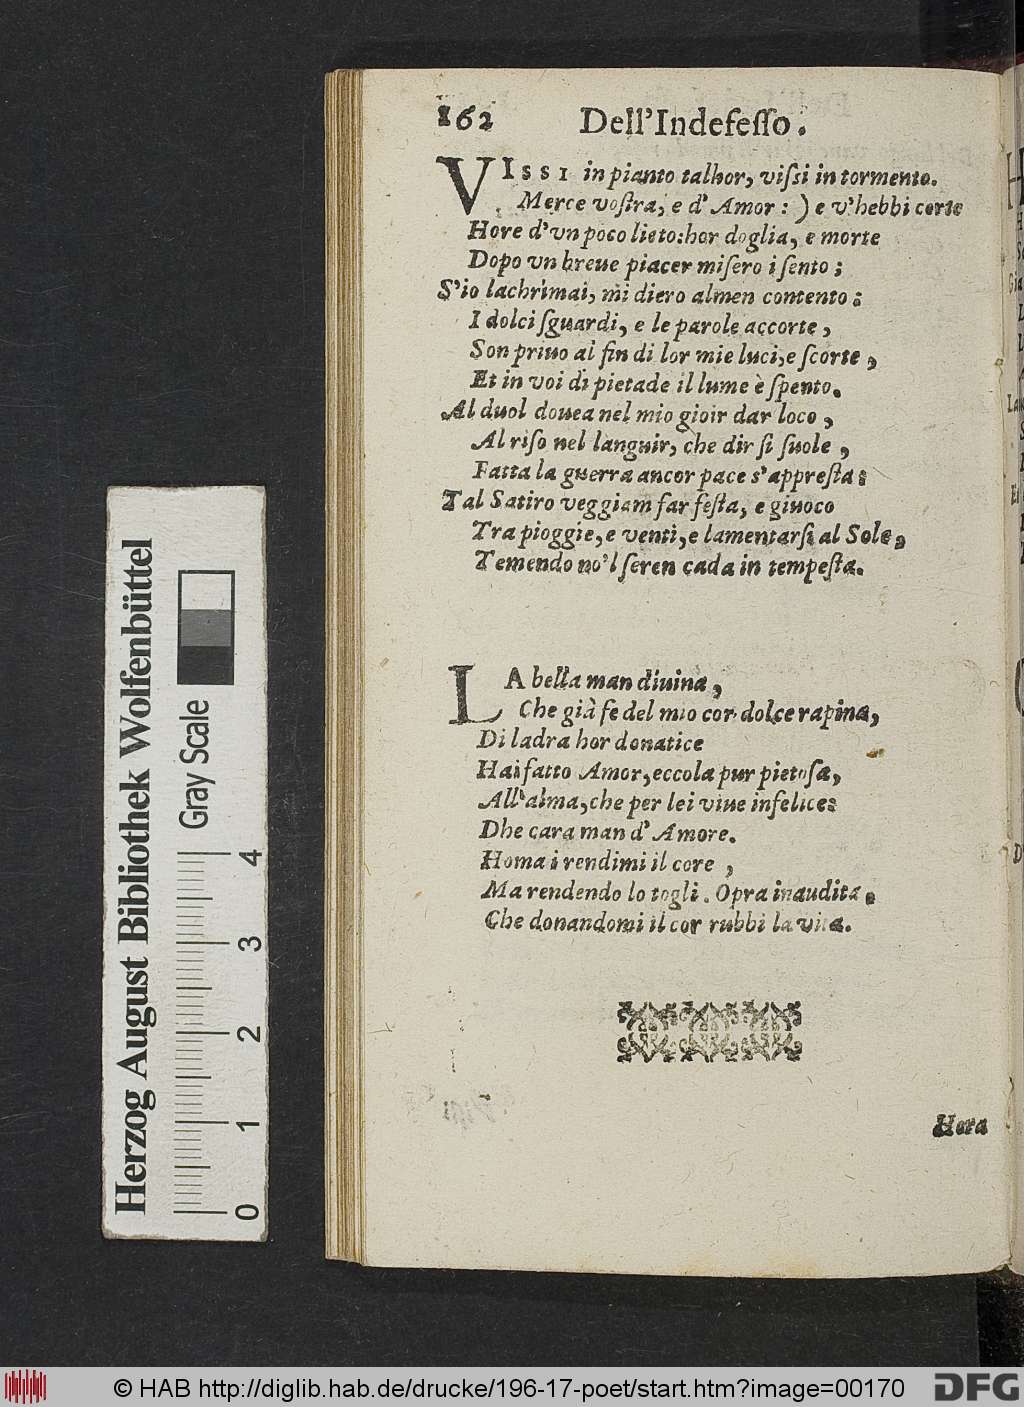 162 Dell'Indefeſſo.
VISSI in pianto talhor, viſsi in tormento.
Merce voſtra, e d'Amor: ) e v'hebbi corte
Hore d'vn poco lieto: hor doglia, e morte
Dopo vn breue piacer miſero i ſento;
S'io lachrimai, mi diero almen contento:
I dolci ſguardi, e le parole accorte,
Son priuo al fin di lor mie luci, e ſcorte,
Et in voi di pietade il lume è ſpento.
Al duol douea nel mio gioir dar loco,
Al riſo nel languir, che dir ſi ſuole,
Fatta la guerra ancor pace s'appreſta:
Tal Satiro veggiam far feſta, e giuoco
Tra pioggie, e venti, e lamentarſi al Sole,
Temendo no'l ſeren cada in tempeſta.
LA bella man diuina,
Che già fe del mio cor dolce rapina,
Di ladra hor donatice
Hai fatto Amor, eccola pur pietoſa,
All'alma, che per lei viue infelice:
Dhe cara man d'Amore.
Homai rendimi il core,
Ma rendendo lo togli. Opra inaudita,
Che donandomi il cor rubbi la vita.
Hora
Herzog August Bibliothek Wolfenbüttel
Gray Scale
0 1 2 3 4
© HAB http://diglib.hab.de/drucke/196-17-poet/start.htm?image=00170
DFG